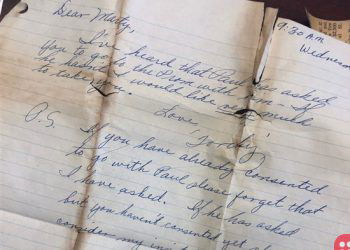 9:30 A.M.
Wednes
Dear Marty,
I've heard that Paul has asked
you to go to the Prom with him. If
he hasn't I would like very much
to take you.
Love,
"Torchy"
P.S. If you have already consented
to go with Paul please forget that
I have asked. If he has asked
but you haven't consented yet
consider my